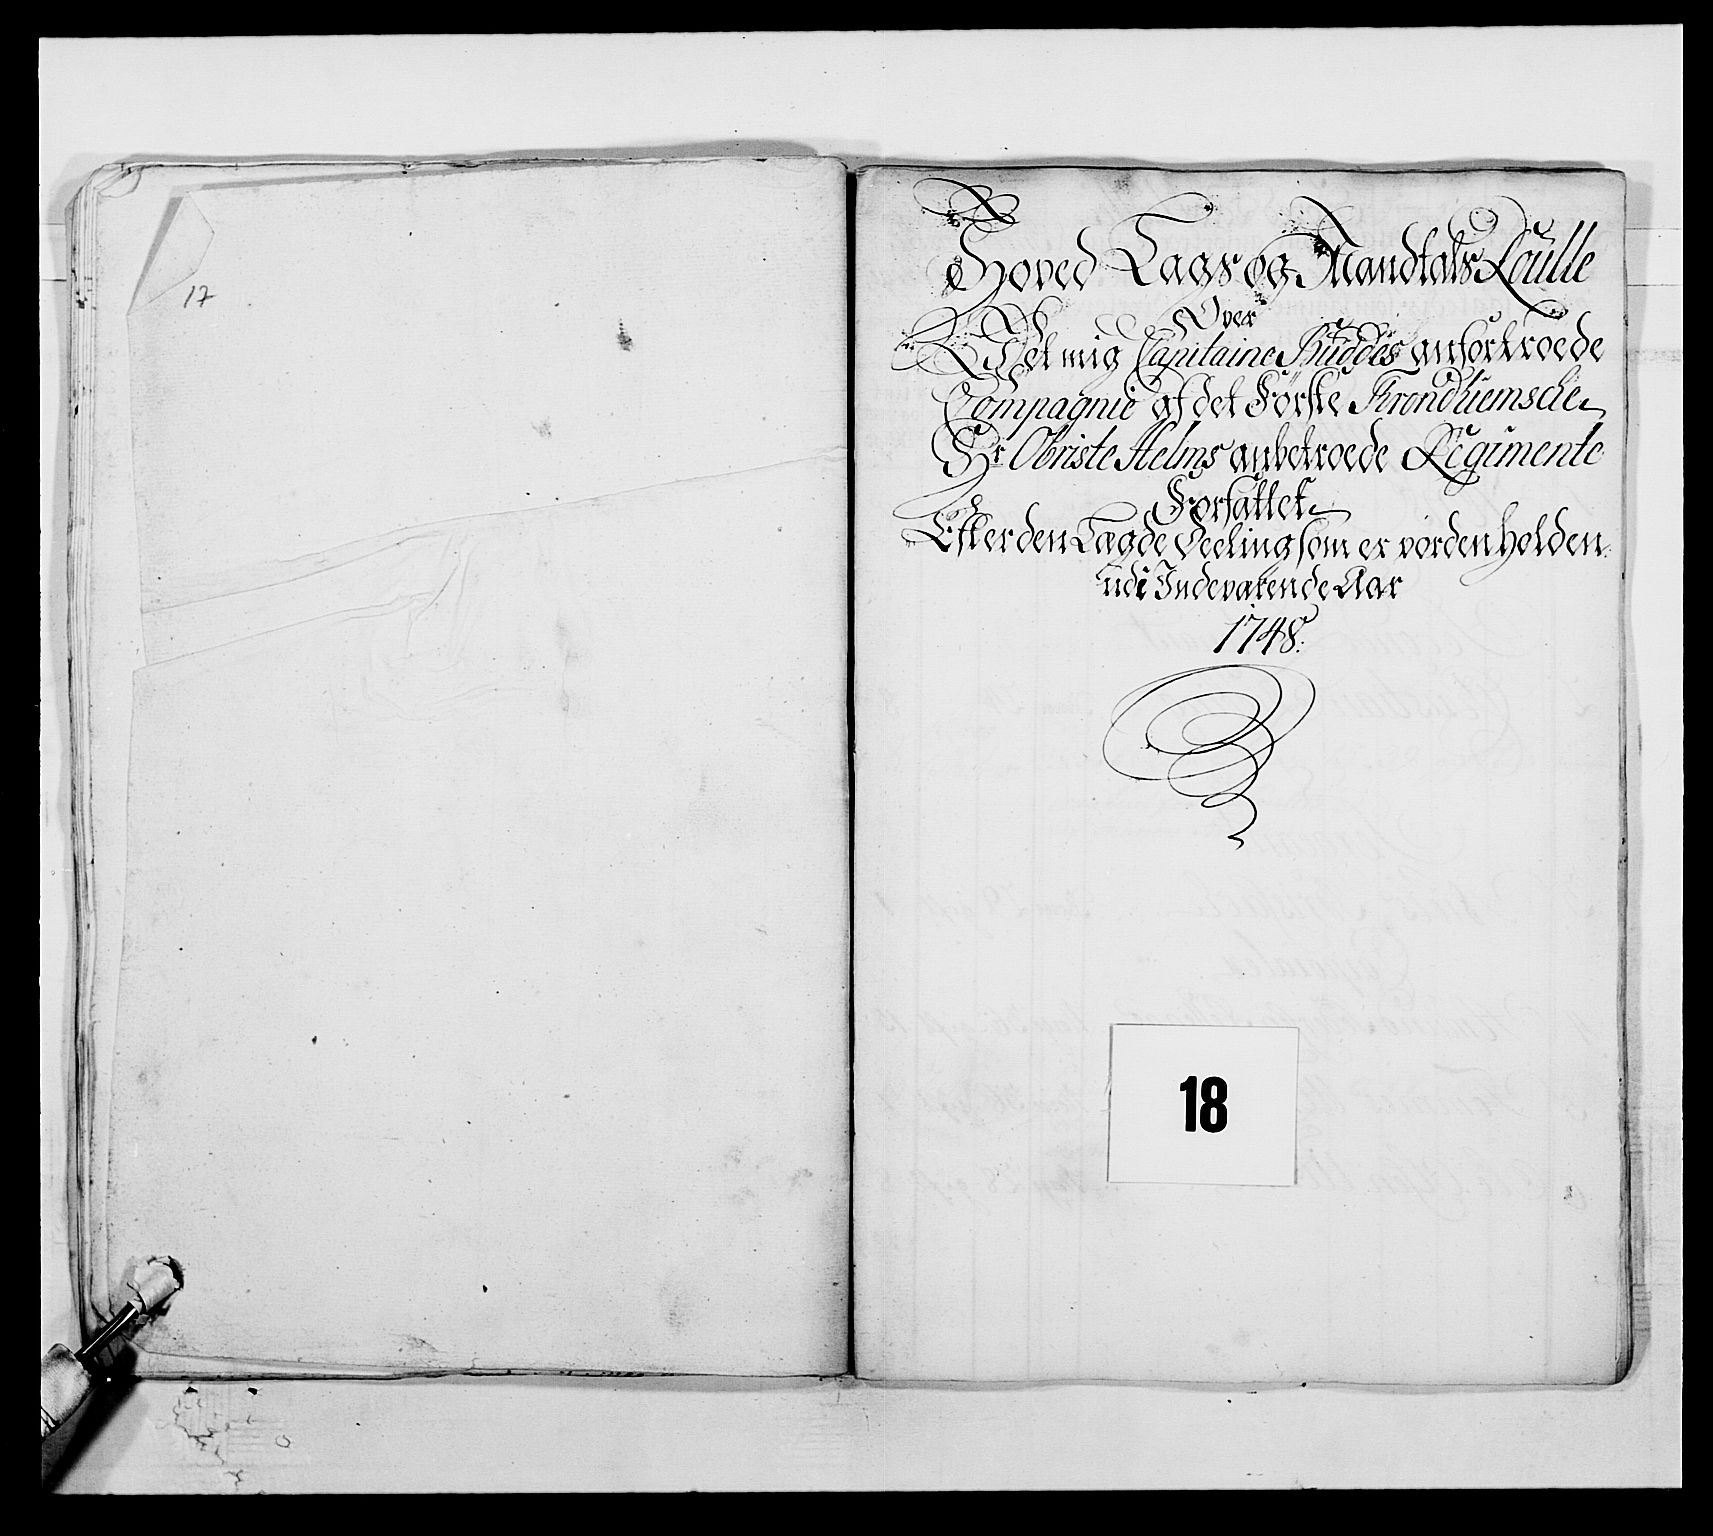 17
Hoved Lags og Mandtals Roulle
Over
Det mig Capitaine Buddes anfortroede
Compagnie af det Første Trondhiemsche
Hr Obriste Helms anbetroede Regimente
Forfattet
Efter den Lagde Deeling som er vorden holden
udi Indeværende Aar
1748.
18